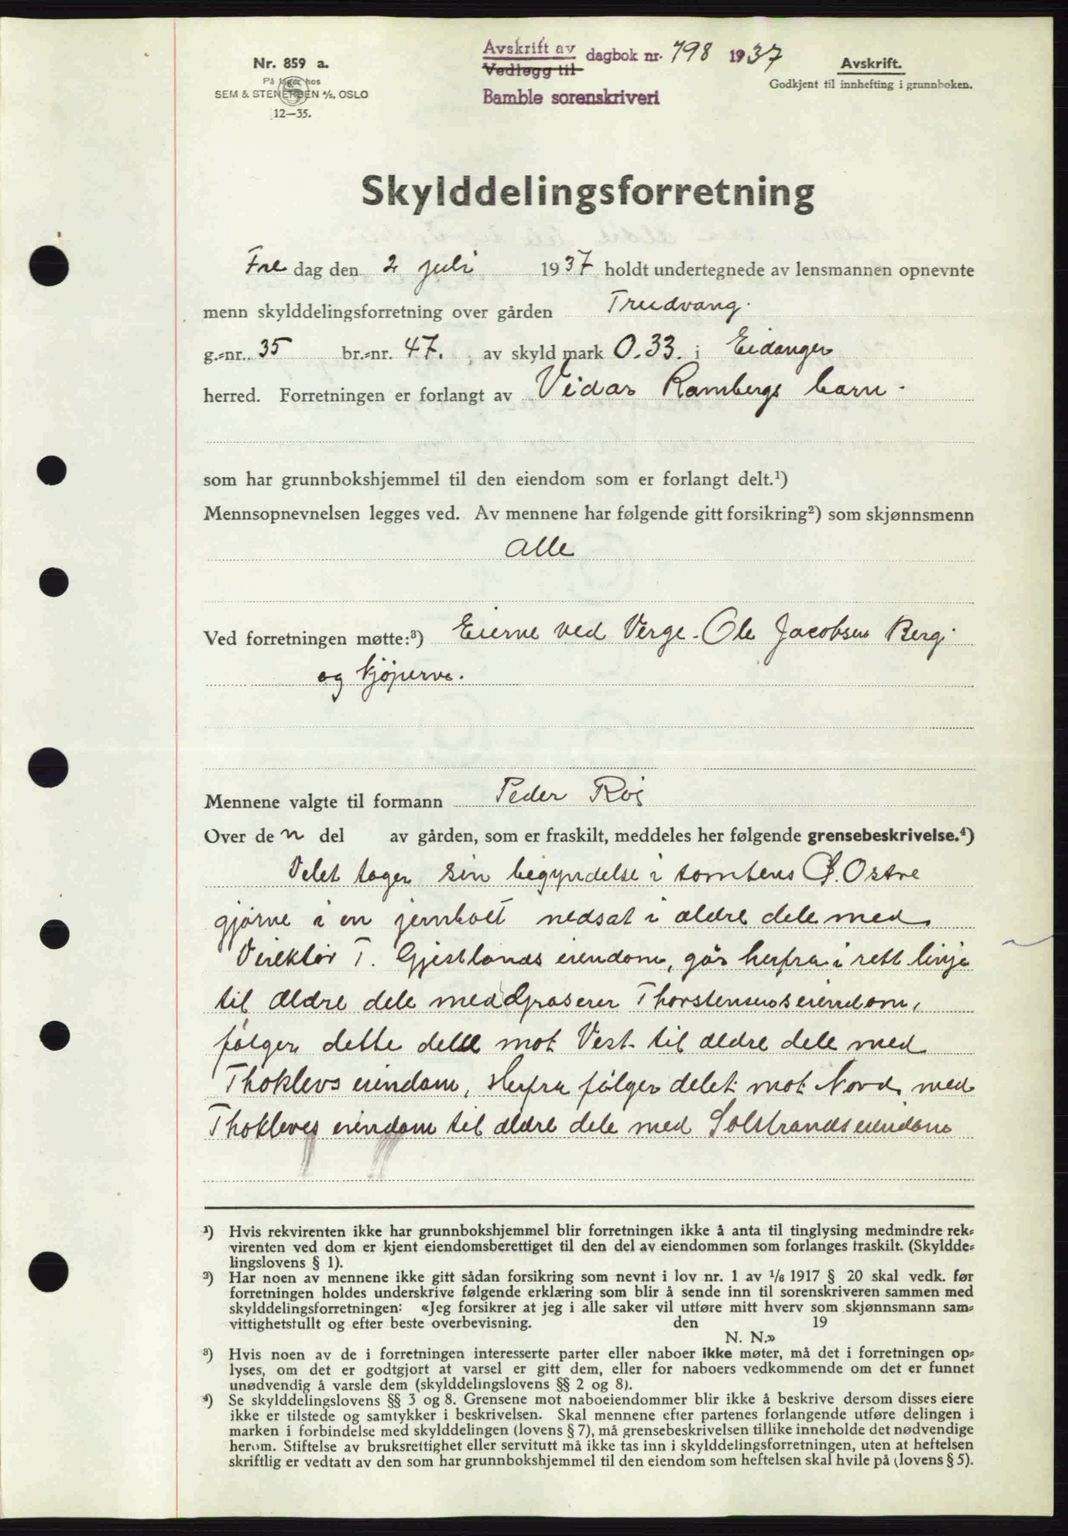 Nr. 859 a.
På lager hos
SEM & STENERSEN A/S, OSLO
12—35.
Avskrift av dagbok nr. 798 1937
Vedlegg til
Bamble sorenskriveri
Avskrift.
Godkjent til innhefting i grunnboken.
Skylddelingsforretning
Fre dag den 2 juli 1937 holdt undertegnede av lensmannen opnevnte
menn skylddelingsforretning over gården Trudvang.
g.=nr. 35 br.=nr. 47. av skyld mark 0.33. i Eidanger
herred. Forretningen er forlangt av Vidar Rambergs barn.
som har grunnbokshjemmel til den eiendom som er forlangt delt.¹)
Mennsopnevnelsen legges ved. Av mennene har følgende gitt forsikring²) som skjønnsmenn
Alle
Ved forretningen møtte:³) Eierne ved Verge. Ole Jacobsen Berg.
og kjøperne.
Mennene valgte til formann Peder Roi
Over de n del av gården, som er fraskilt, meddeles her følgende grensebeskrivelse.⁴)
Delet tager sin begyndelse i tomtens Ø. Østre
gjørne i en jernbolt nedsat i ældre dele med
Direktør T. Gjestlands eiendom, går herfra i rett linje
til ældre dele med Graserer Thorstensens eiendom,
følger dette dele mot Vest til ældre dele med
Thoklevs eiendom, Herfra følger delet mot Nord, med
Thoklevs eiendom til ældre dele med Solstrands eiendom
¹) Hvis rekvirenten ikke har grunnbokshjemmel blir forretningen ikke å anta til tinglysing medmindre rek=
virenten ved dom er kjent eiendomsberettiget til den del av eiendommen som forlanges fraskilt. (Skyldde=
lingslovens § 1).
²) Har noen av mennene ikke gitt sådan forsikring som nevnt i lov nr. 1 av 1/6 1917 § 20 skal vedk. før
forretningen holdes underskrive følgende erklæring som blir å sende inn til sorenskriveren sammen med
skylddelingsforretningen: «Jeg forsikrer at jeg i alle saker vil utføre mitt hverv som skjønnsmann sam=
vittighetsfullt og efter beste overbevisning. den 19
N. N.»
³) Hvis noen av de i forretningen interesserte parter eller naboer ikke møter, må det i forretningen op=
lyses, om det er godtgjort at varsel er gitt dem, eller for naboers vedkommende om det er funnet
unødvendig å varsle dem (skylddelingslovens §§ 2 og 8).
⁴) Se skylddelingslovens §§ 3 og 8. Grensene mot naboeiendommer blir ikke å beskrive dersom disses eiere
ikke er tilstede og samtykker i beskrivelsen. Skal mennene efter partenes forlangende utføre delingen i
marken i forbindelse med skylddelingen (lovens § 7), må grensebeskrivelsen tillike inneholde det nødvendige
herom. Stiftelse av bruksrettighet eller servitutt må ikke tas inn i skylddelingsforretningen, uten at heftelsen
skriftlig er vedtatt av den som har grunnbokshjemmel til den eiendom som heftelsen skal hvile på (lovens § 5).